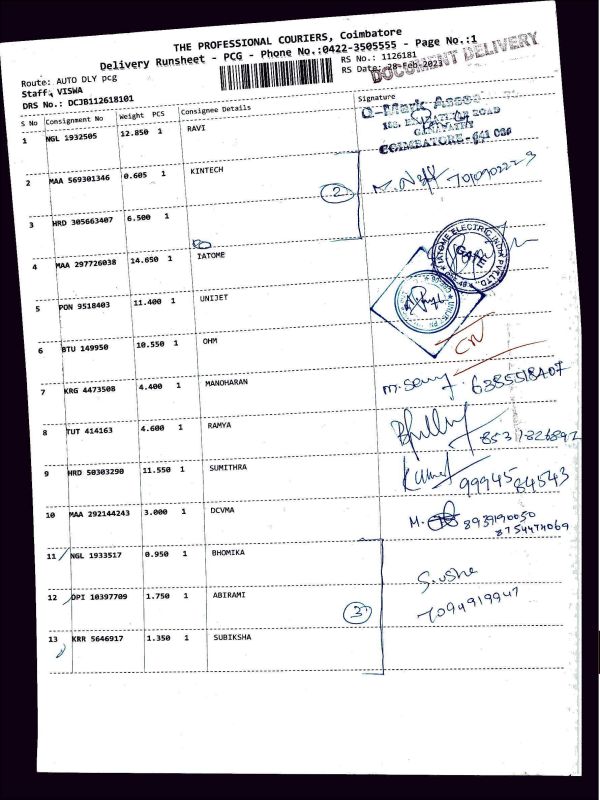 THE PROFESSIONAL COURIERS, Coimbatore
Delivery Runsheet - PCG - Phone No.:0422-3505555 - Page No.:1
Route: AUTO DLY pcg
Staff: VISWA
DRS No.: DCJB112618101
RS No.: 1126181
RS Date: 28-Feb-2023
DOCUMENT DELIVERY
S No Consignment No Weight PCS Consignee Details Signature
1 NGL 1932505 12.850 1 RAVI
COIMBATORE - 641 006
2 MAA 569301346 0.605 1 KINTECH
2
3 HRD 305663407 6.500 1
4 MAA 297726038 14.650 1 IATOME
5 PON 9518403 11.400 1 UNIJET
6 BTU 149950 10.550 1 OHM
7 KRG 4473508 4.400 1 MANOHARAN
63855518407
8 TUT 414163 4.600 1 RAMYA
9 HRD 50303290 11.550 1 SUMITHRA
Kumar 99945 84543
10 MAA 292144243 3.000 1 DCVMA
M. 8939190050
8754474069
11 NGL 1933517 0.950 1 BHOMIKA
S. usha
12 DPI 10397709 1.750 1 ABIRAMI
3
7094919947
13 KRR 5646917 1.350 1 SUBIKSHA